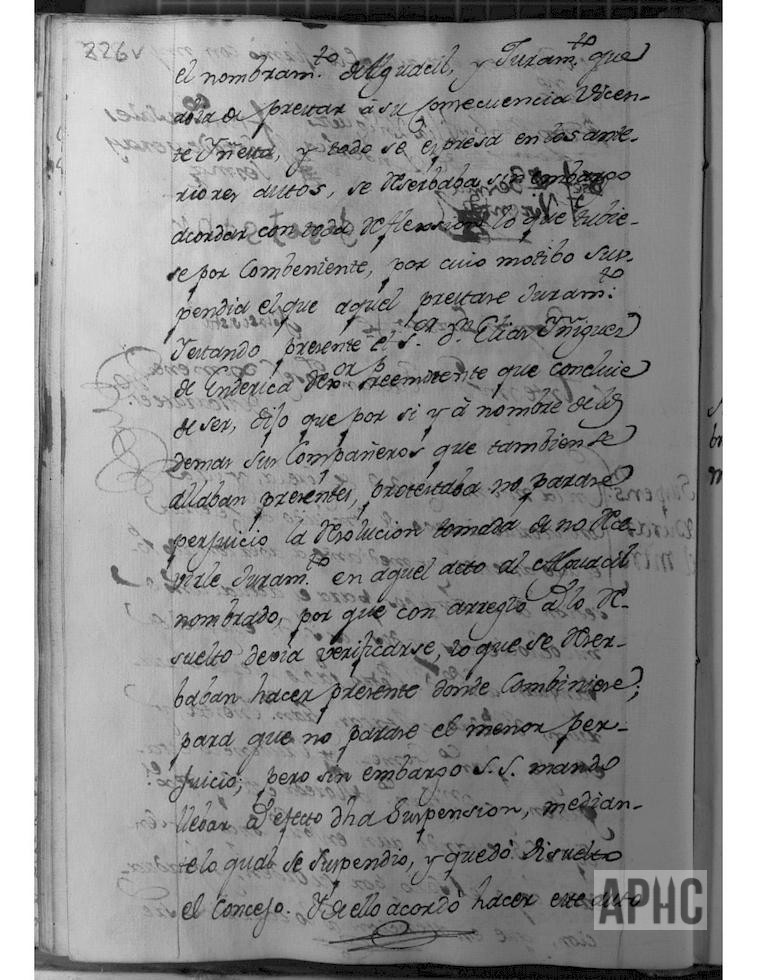 226v
el nombram.to de Alguacil, y Juram.to que
debia de prestar á su consecuencia Vicen-
te Yñetta, y todo se expresa en los ante-
riores autos, se reserbaba sin embargo
acordar con toda reflexsion lo que tubie-
se por Combeniente, por cuio motibo sus-
pendia el que aquel prestase Juram.to
Yestando presente el S.or D.n Elias Yñiguez
de Enderica Rexor preeminente que concluie
de ser, dijo que por si y á nombre de los
demas sus Compañeros que tambien se
allaban presentes, protestaba no parase
perjuicio la resolucion tomada de no reci-
virle Juram.to en aquel acto al Alguacil
nombrado, por que con arreglo á lo re-
suelto devia verificarse, lo que se reser-
baban hacer presente donde Combiniese;
para que no parase el menor per-
juicio; pero sin embargo S.S. mandó
llebar á efecto dha Suspension, median-
te lo qual se suspendio, y quedó disuelto
el Concejo. Y de ello acordó hacer este auto
APHC